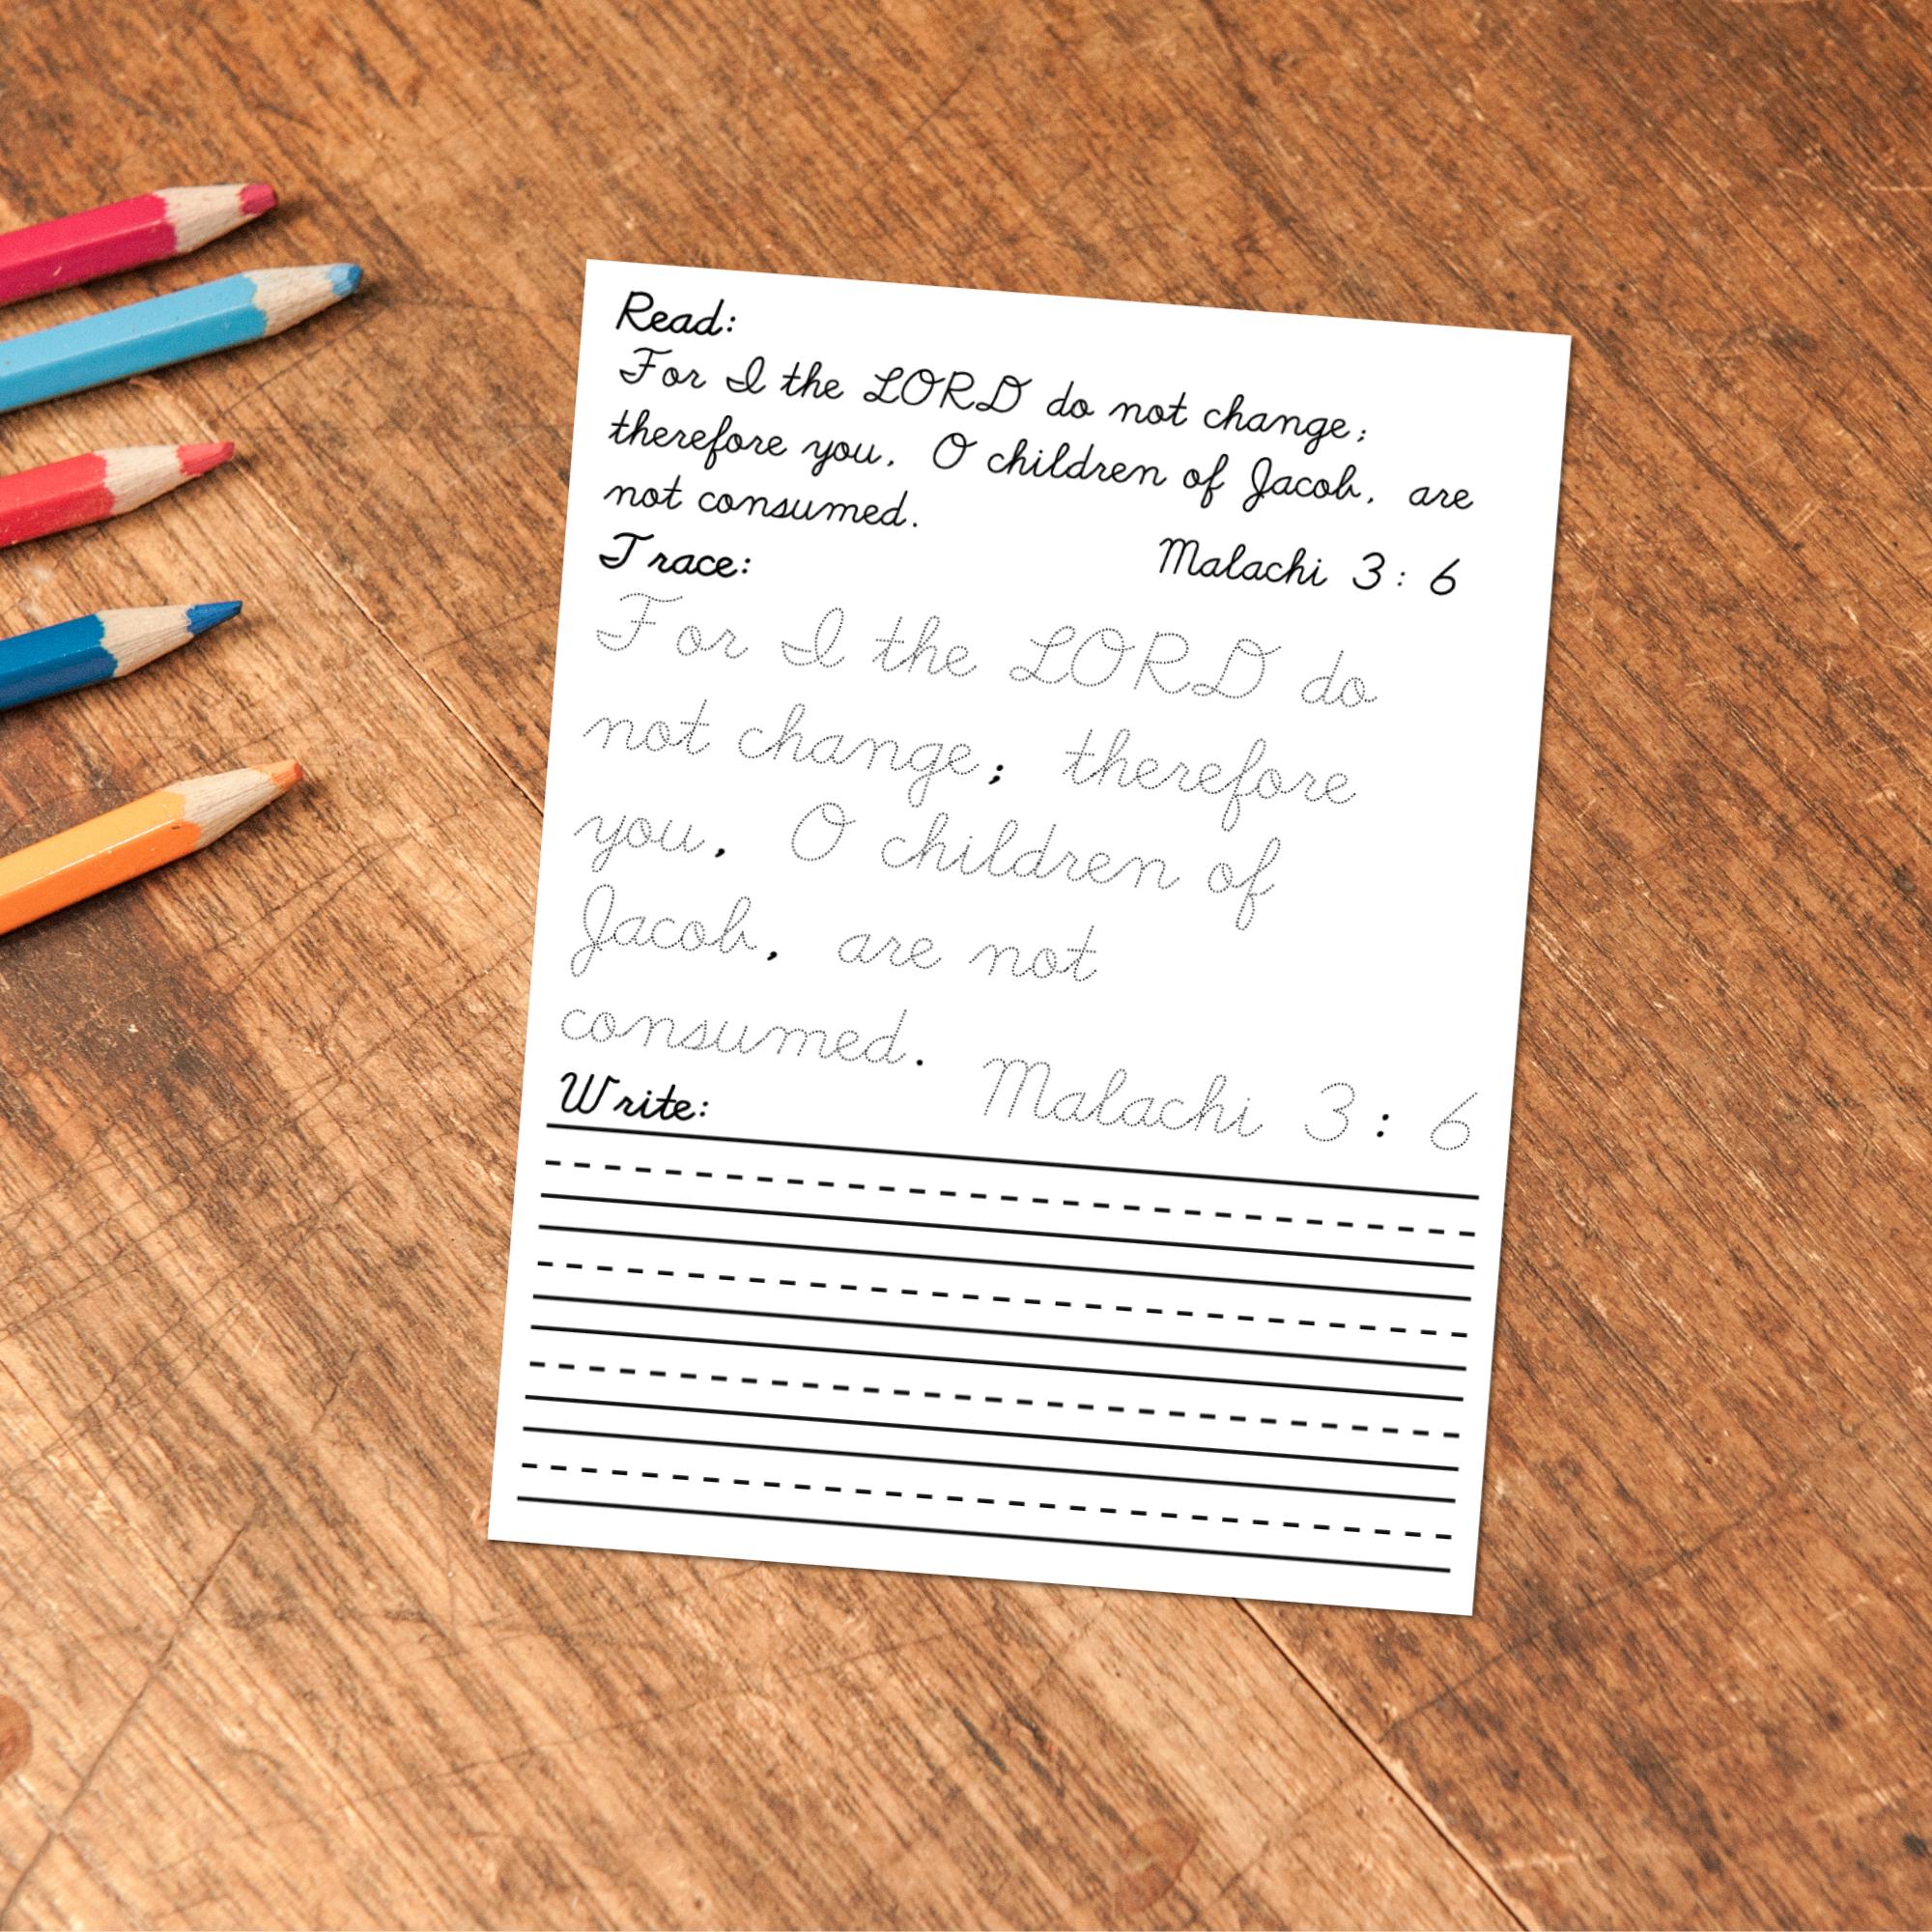 Read:
For I the LORD do not change;
therefore you, O children of Jacob, are
not consumed.
Malachi 3: 6
Trace:
For I the LORD do
not change; therefore
you, O children of
Jacob, are not
consumed.
Malachi 3: 6
Write: